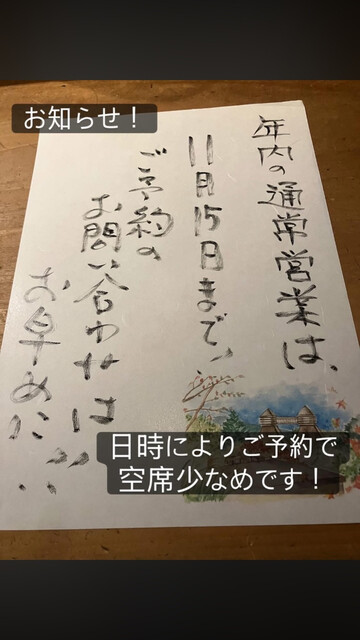 お知らせ！
年内の通常営業は、
11月15日まで！
ご予約の
お問い合わせは
お早めに…
日時によりご予約で
空席少なめです！